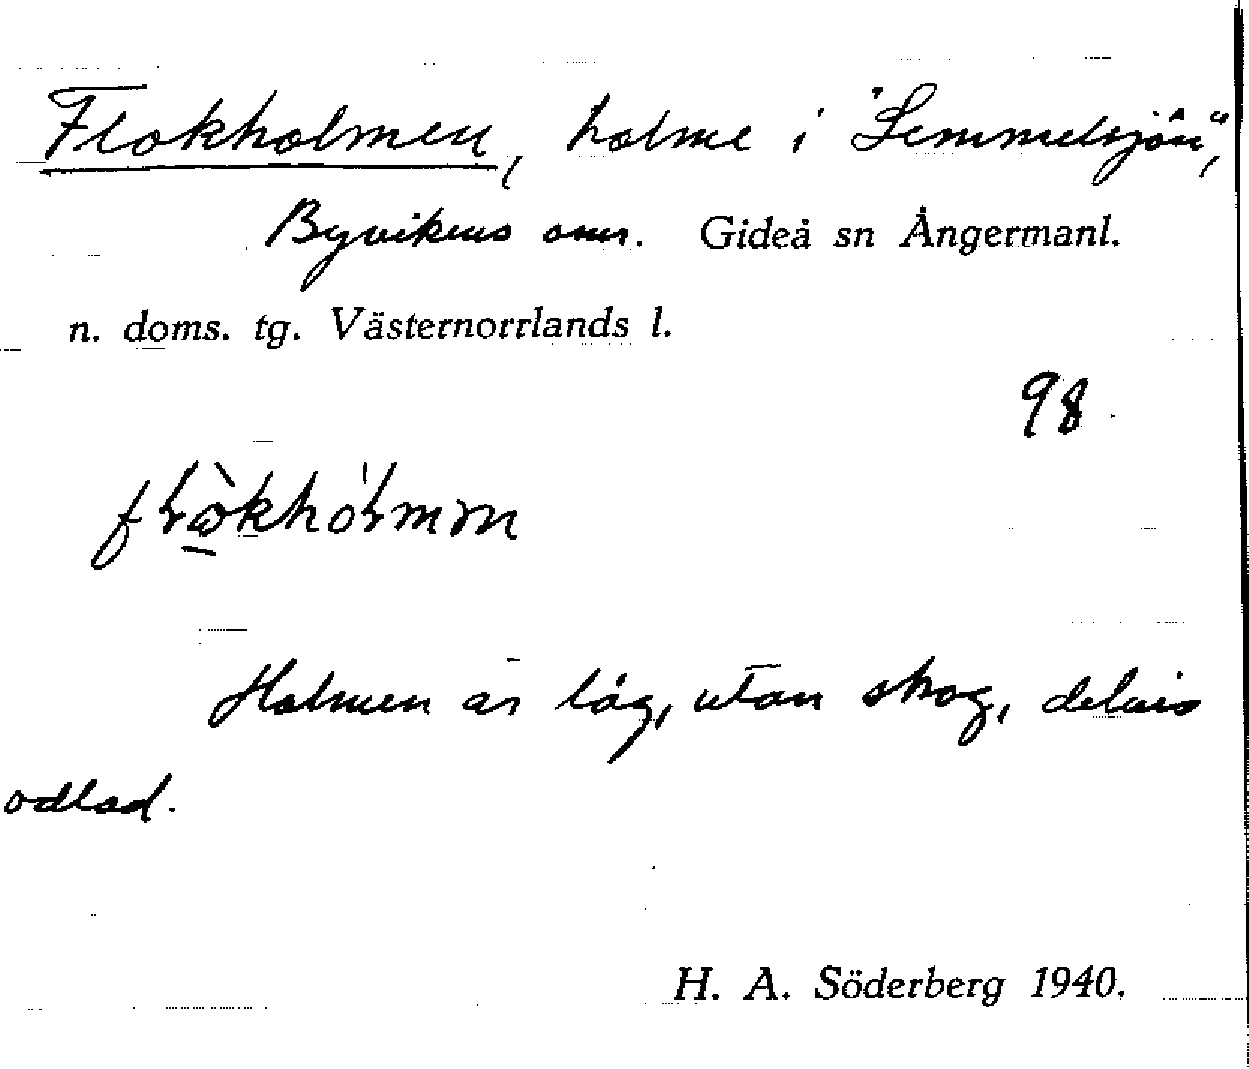 Flokholmen, holme i "Lemmelsjön",
Byvikens omr. Gideå sn Ångermanl.
n. doms. tg. Västernorrlands l.
98.
Holmen är låg, utan skog, delvis
odlad.
H. A. Söderberg 1940.